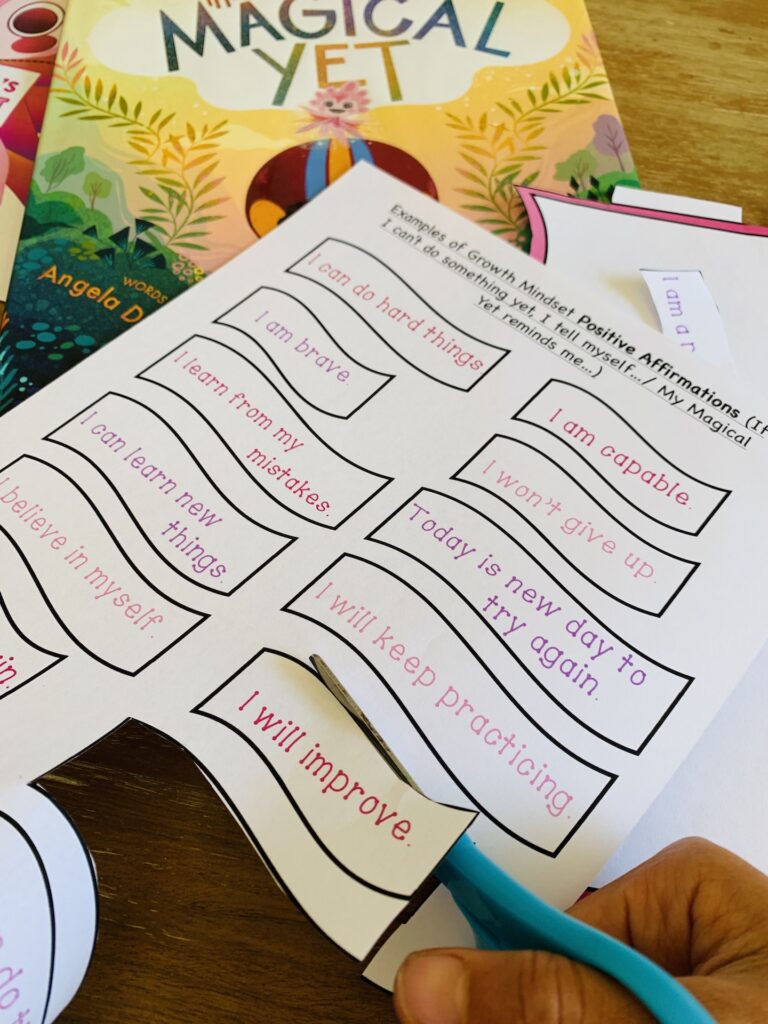 MAGICAL
YET
WORDS
Angela D
Examples of Growth Mindset Positive Affirmations (If
I can't do something yet, I tell myself.../ My Magical
Yet reminds me...)
I can do hard things
I am brave.
I learn from my
mistakes.
I can learn new
things.
I believe in myself.
I am capable.
I won't give up.
Today is new day to
try again.
I will keep practicing.
I will improve.
I am a